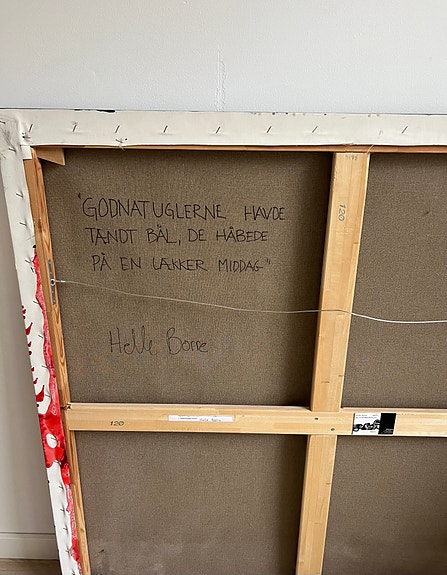 "GODNATUGLERNE HAVDE
TÆNDT BÅL, DE HÅBEDE
PÅ EN LÆKKER MIDDAG"
Helle Borre
120
120
Helle Borre